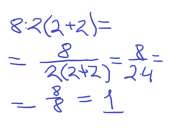 8:2(2+2)=
= 8/2(2+2) = 8/2·4 =
= 8/8 = 1